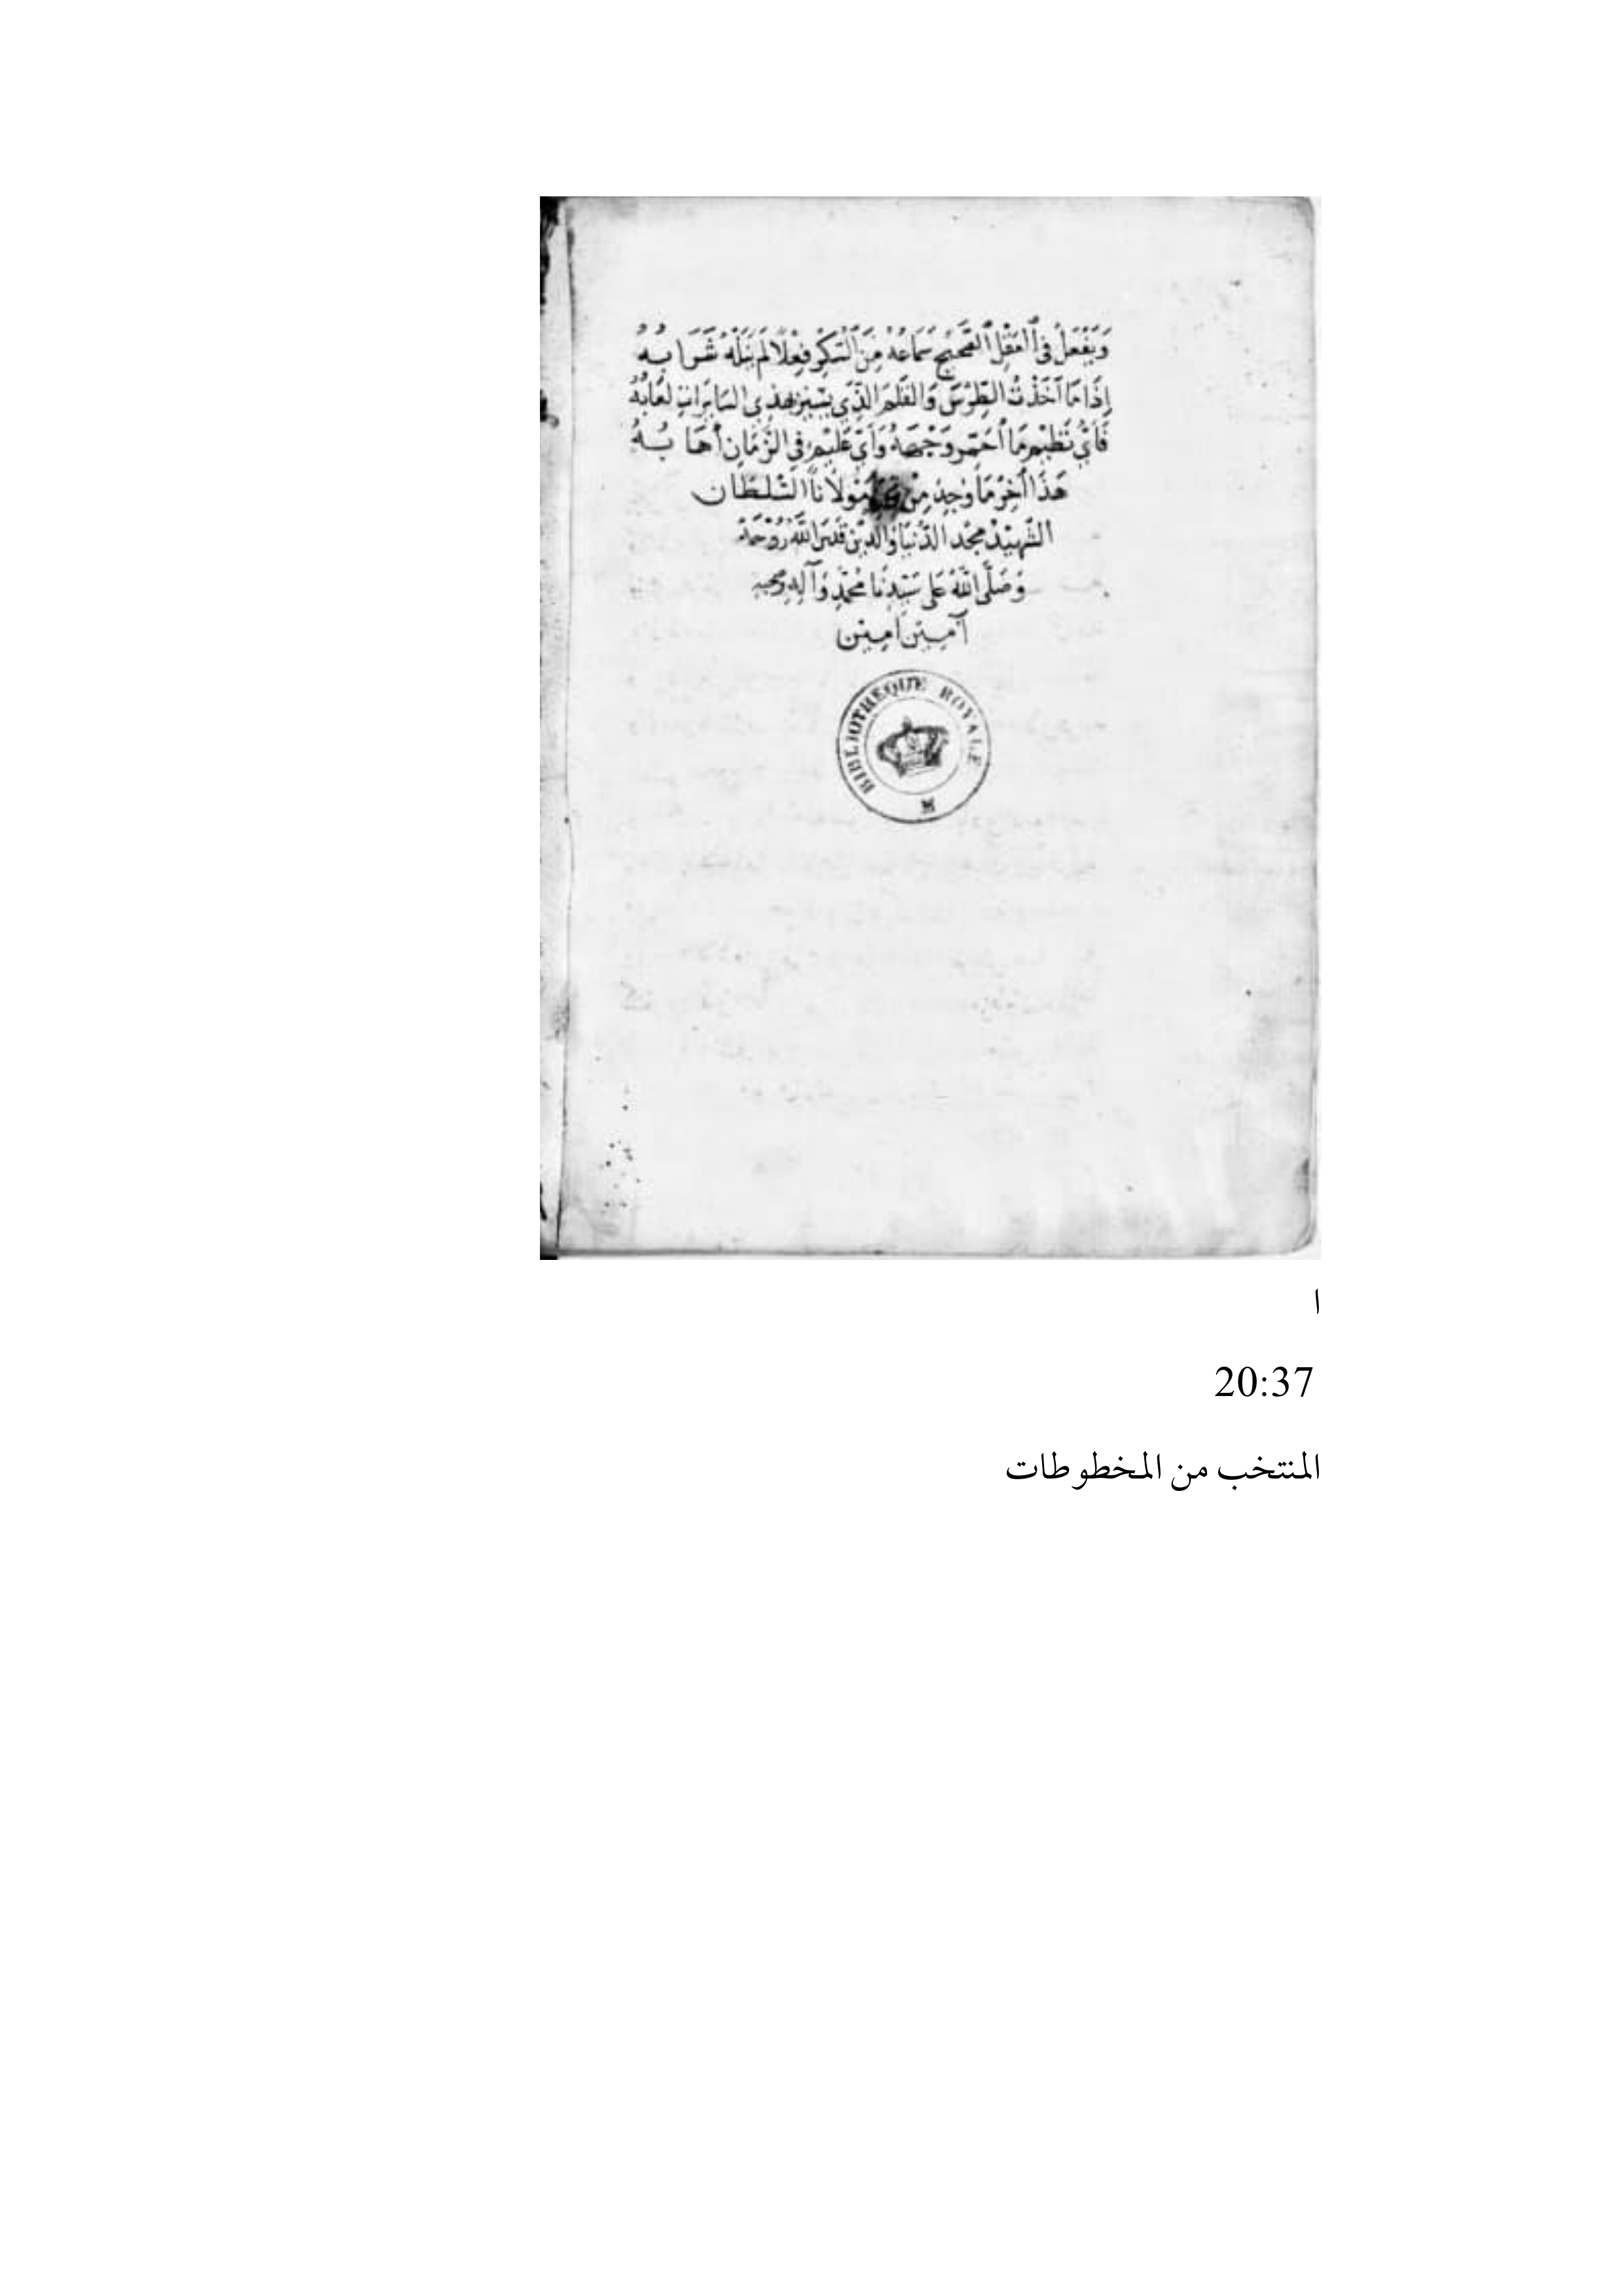 وَيَفْعَلُ فِي ٱلْعَقْلِ ٱلصَّحِيحِ سَمَاعُهُ مِنَ ٱلسُّكْرِ فِعْلًا لَمْ يَنَلْهُ شَرَابُهُ
إِذَا مَا أَخَذْتُ الطِّرْسَ وَالْقَلَمَ الَّذِي يَسِيرُ بِهَذِي السَّايِرَاتِ لُعَابُهُ
فَأَيُّ نَظِيمٍ مَا أُحَمِّرُ وَجْهَهُ وَأَيُّ عَلِيمٍ فِي الزَّمَانِ أَهَابُهُ
هَذَا آخِرُ مَا وُجِدَ مِنْ مَوْلَانَا السُّلْطَان
الشَّهِيْدُ مجْد الدُّنْيَا وَالدِّين قَدَّسَ اللهُ رُوْحَهُ
وَصَلَّى اللهُ عَلَى سَيِّدِنَا مُحَمَّدٍ وَآلِهِ وصَحْبِهِ
آمِيْن آمِيْن
BIBLIOTHEQUE ROYALE
ا
20:37
المنتخب من المخطوطات